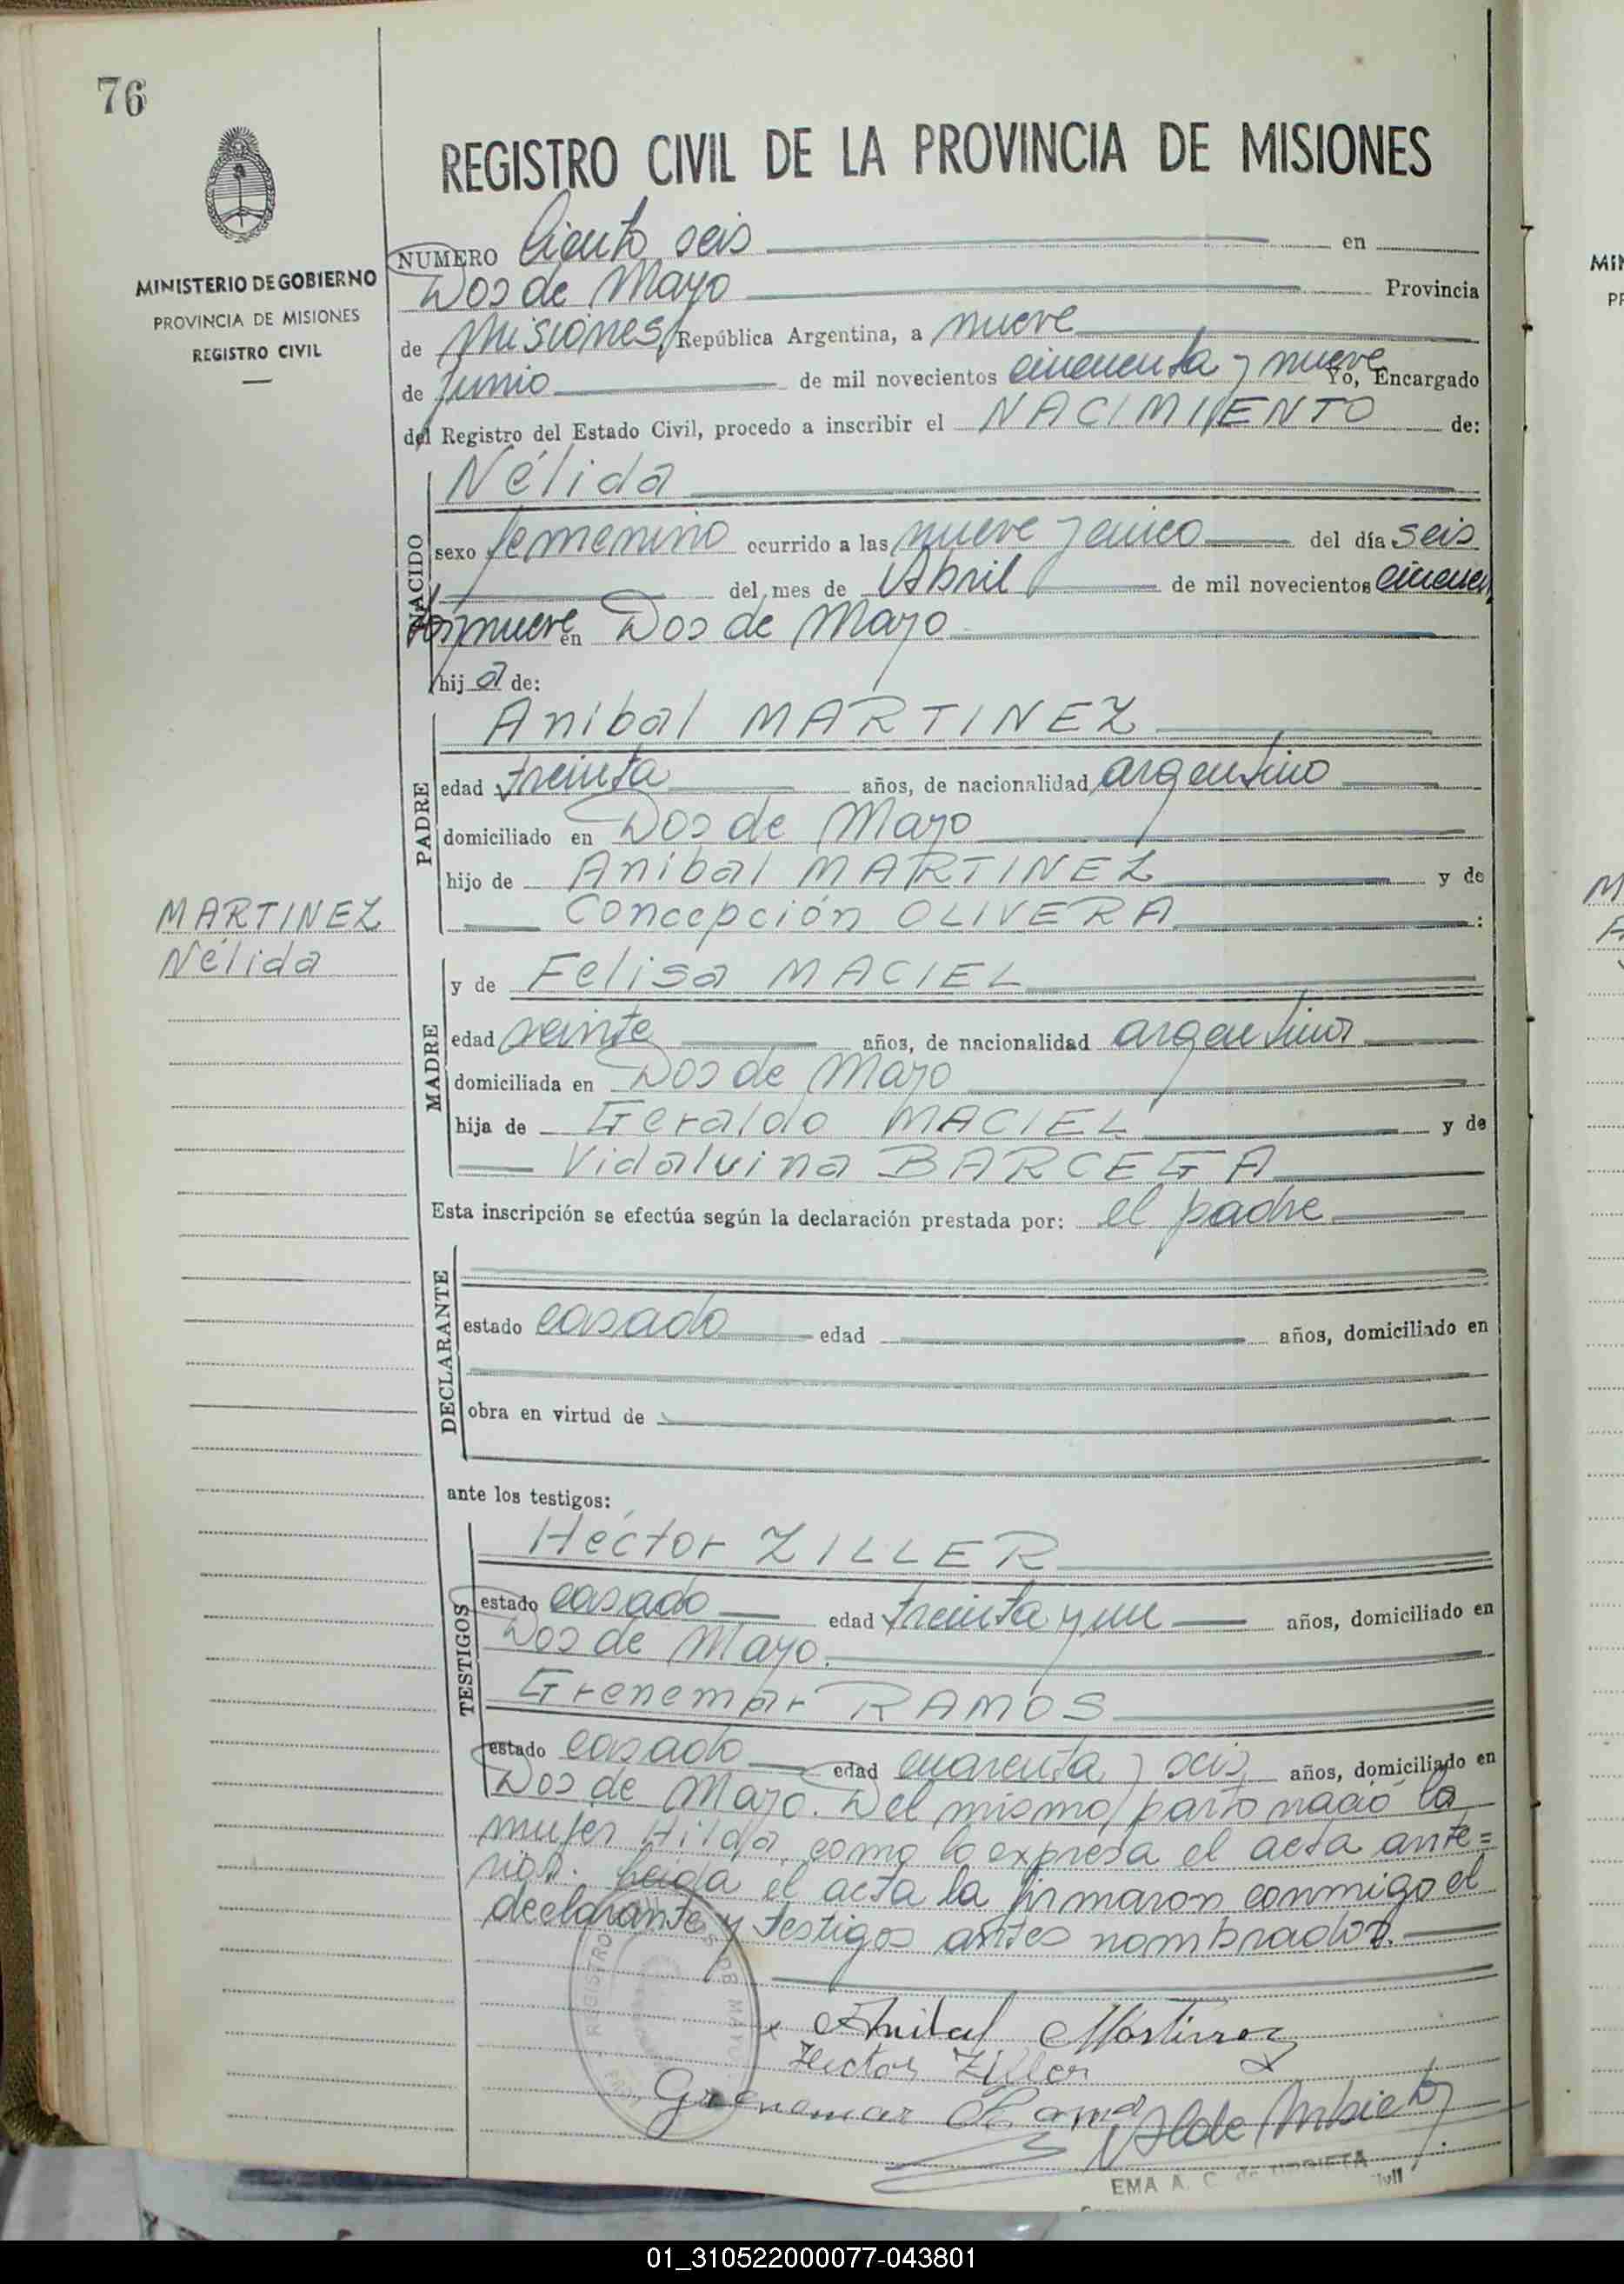 76
MINISTERIO DE GOBIERNO
PROVINCIA DE MISIONES
REGISTRO CIVIL
REGISTRO CIVIL DE LA PROVINCIA DE MISIONES
NUMERO Ciento seis en
Dos de Mayo Provincia
de Misiones, República Argentina, a nueve
de Junio de mil novecientos cincuenta y nueve Yo, Encargado
del Registro del Estado Civil, procedo a inscribir el NACIMIENTO de:
NACIDO
Nélida
sexo femenino ocurrido a las nueve y cinco del día seis
del mes de Abril de mil novecientos cincuen
ta y nueve en Dos de Mayo
hij a de:
PADRE
Anibal MARTINEZ
edad treinta años, de nacionalidad argentino
domiciliado en Dos de Mayo
hijo de Anibal MARTINEZ y de
Concepción OLIVERA :
MARTINEZ
Nélida
MADRE
y de Felisa MACIEL
edad veinte años, de nacionalidad argentina
domiciliada en Dos de Mayo
hija de Geraldo MACIEL y de
Vidalvina BARCEGA
Esta inscripción se efectúa según la declaración prestada por: el padre
DECLARANTE
estado casado edad años, domiciliado en
obra en virtud de
ante los testigos:
TESTIGOS
Héctor ZILLER
estado casado edad treinta y un años, domiciliado en
Dos de Mayo.
Grenemar RAMOS
estado casado edad cuarenta y seis años, domiciliado en
Dos de Mayo. Del mismo parto nació la
mujer Hilda, como lo expresa el acta ante=
rior. Leída el acta la firmaron conmigo el
declarante y testigos antes nombrados.
REGISTRO DOS DE MAYO
Anibal Martinez
Hector Ziller
Grenemar Ramos
EMA A. C. de URRIETA
01_310522000077-043801